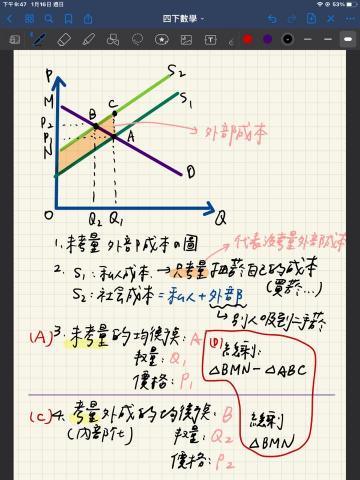 下午9:47 1月16日 週日
53%
四下數學
P
M
S2
S1
C
B
P2
P1
A
N
外部成本
D
O
Q2 Q1
Q
1. 未考量外部成本的圖
代表沒考量外部成本
2. S1:私人成本 → 只考量抽菸自己的成本
(買菸...)
S2:社會成本=私人+外部
↳別人吸到二手菸
(A) 3. 未考量的均衡換:A
數量:Q1
價格:P1
(D) 總剩:
△BMN-△ABC
(C) 4. 考量外成的均衡換:B
(內部化)
數量:Q2
價格:P2
總剩
△BMN